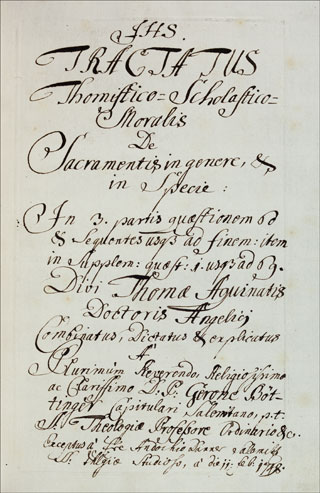 JHS.
TRACTATUS
Thomistico=Scholastico=
Moralis
De
Sacramentis in genere, &
in Specie:
In 3. partis quæstionem 60
& Sequentes usq3 ad finem: item
in Supplem: quæst: 1. usq3 ad 69.
Divi Thomæ Aquinatis
Doctoris Angelici
Combinatus, Dictatus & explicatus
A
Plurimum Reverendo, Religiosissimo
ac Clarissimo D. P. Gerope Böt-
tinger Capitulari Salemitano, p.t.
SS. Theologiæ Professore Ordinario &c.
Exceptus à Fre Antochio
SS. Ellgiæ Studioso, a die 11.